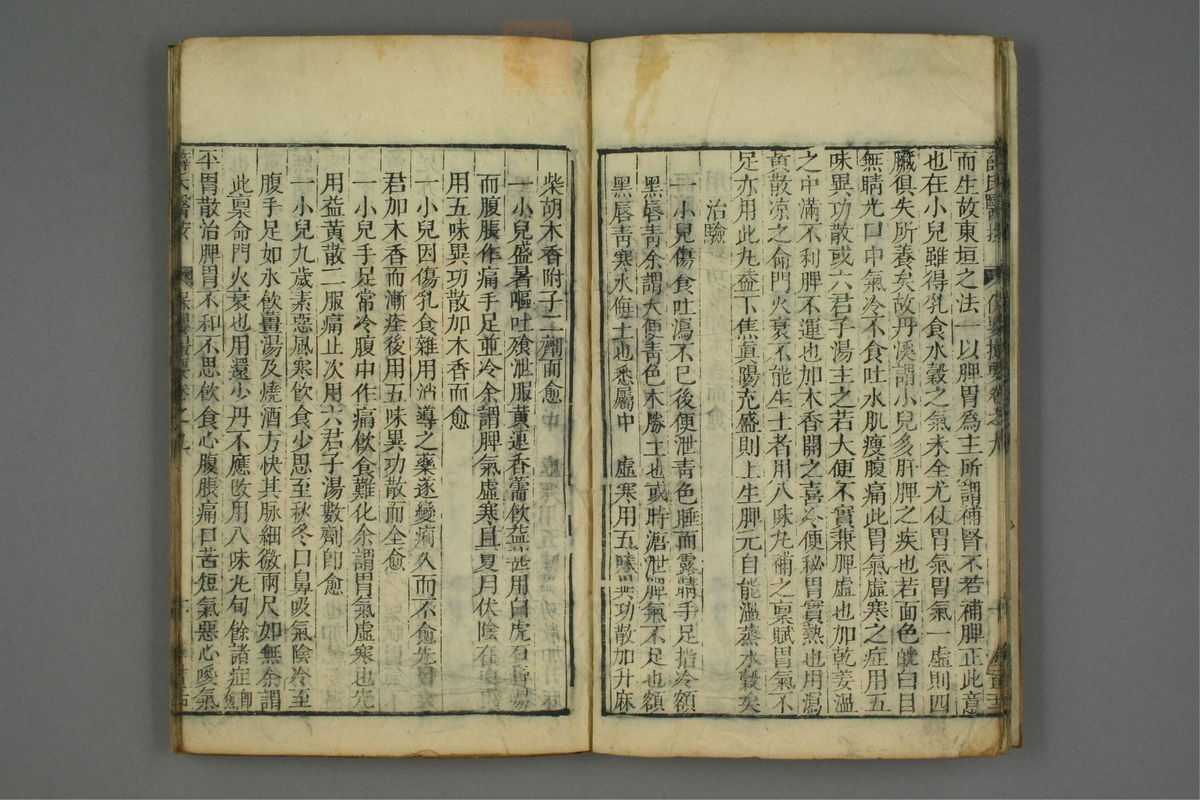 而生故東垣之法一以脾胃爲主所謂補腎不若補脾正此意
也在小兒雖得乳食水穀之氣未全尤仗胃氣胃氣一虛則四
臟俱失所養矣故丹溪謂小兒多肝脾之疾也若面色㿠白目
無睛光口中氣冷不食吐水肌瘦腹痛此胃氣虛寒之症用五
味異功散或六君子湯主之若大便不實兼脾虛也加乾姜溫
之中滿不利脾不運也加木香開之喜冷便秘胃實熱也用瀉
黃散凉之命門火衰不能生土者用八味丸補之禀賦胃氣不
足亦用此丸蓋下焦眞陽充盛則上生脾元自能溫蒸水穀矣
治驗
一小兒傷食吐瀉不已後便泄青色睡而露睛手足指冷額
黑唇青余謂大便青色木勝土也或時溏泄脾氣不足也額
黑唇靑寒水侮土也悉屬中 虛寒用五味異功散加升麻
柴胡木香附子二劑而愈
一小兒盛暑嘔吐飱泄服黃連香薷飲益甚用白虎石膏湯
而腹脹作痛手足並冷余謂脾氣虛寒且夏月伏陰在內
用五味異功散加木香而愈
一小兒因傷乳食雜用消導之藥遂變痢久而不愈先
君加木香而漸痊後用五味異功散而全愈
一小兒手足常冷腹中作痛飲食難化余謂胃氣虛寒也先
用益黃散二服痛止次用六君子湯數劑卽愈
一小兒九歲素惡風寒飲食少思至秋冬口鼻吸氣陰冷至
腹手足如水飮薑湯及燒酒方快其脉細微兩尺如無余謂
此禀命門火衰也用還少丹不應改用八味丸旬餘諸症卽愈
平胃散治脾胃不和不思飮食心腹脹痛口苦短氣惡心噯氣